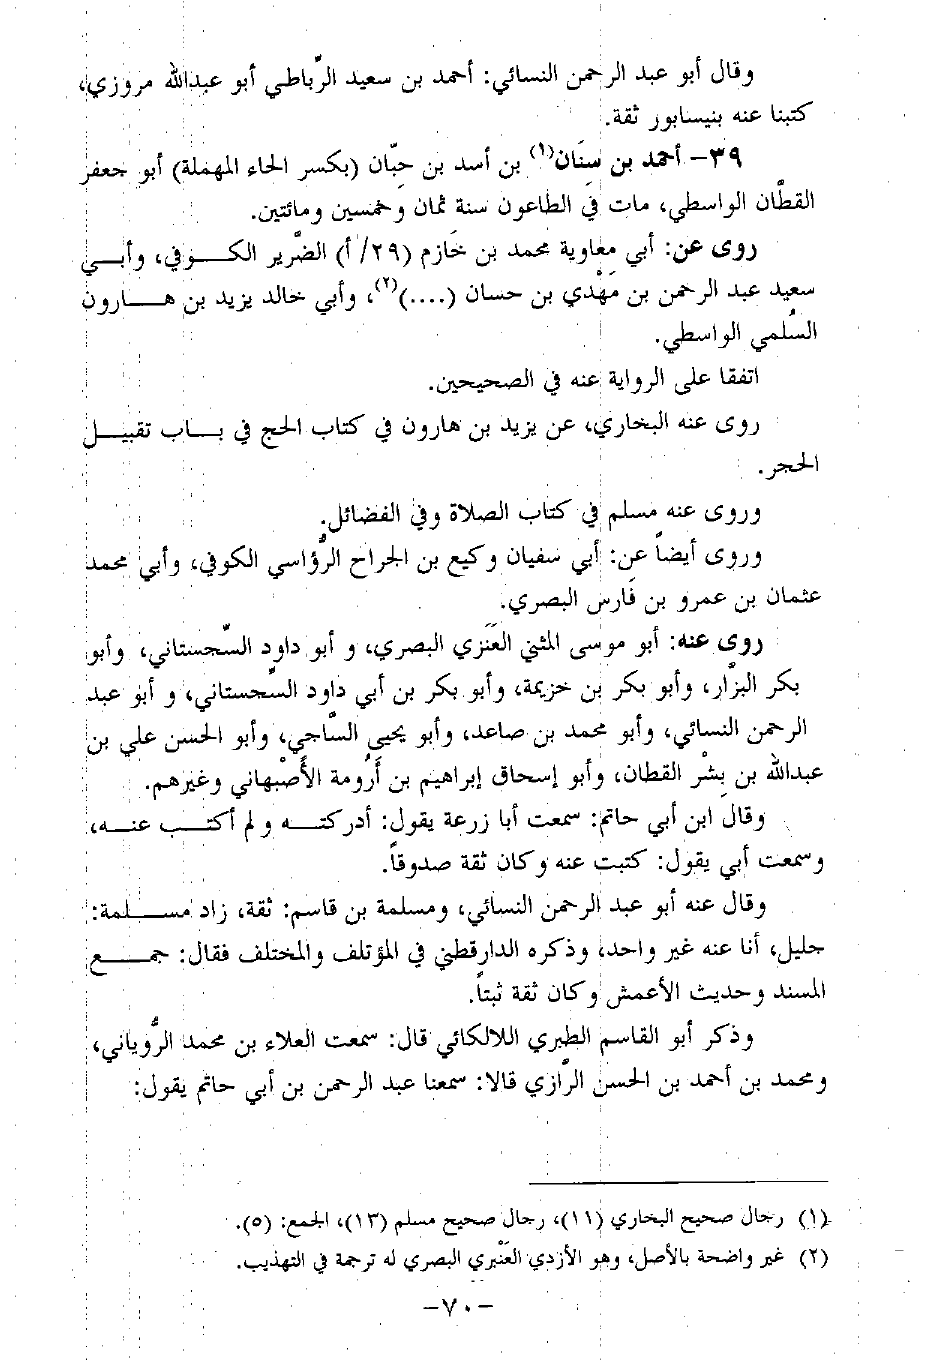 وقال أبو عبد الرحمن النسائي: أحمد بن سعيد الرّباطي أبو عبدالله مروزي،
كتبنا عنه بنيسابور ثقة.
٣٩- أحمد بن سِنَان(١) بن أسد بن حِبّان (بكسر الحاء المهملة) أبو جعفر
القطّان الواسطي، مات في الطاعون سنة ثمان وخمسين ومائتين.
روى عن: أبي معاوية محمد بن خَازم (٢٩/ أ) الضّرير الكـــوفي، وأبــي
سعيد عبد الرحمن بن مَهْدي بن حسان (....)(٢)، وأبي خالد يزيد بن هـــارون
السُلمي الواسطي.
اتفقا على الرواية عنه في الصحيحين.
روى عنه البخاري، عن يزيد بن هارون في كتاب الحج في بـــاب تقبيـــل
الحجر.
وروى عنه مسلم في كتاب الصلاة وفي الفضائل.
وروى أيضاً عن: أبي سفيان وكيع بن الجراح الرُّؤاسي الكوفي، وأبي محمد
عثمان بن عمرو بن فَارس البصري.
روى عنه: أبو موسى المثنى العَنَزي البصري، و أبو داود السّجستاني، وأبو
بكر البزّار، وأبو بكر بن خزيمة، وأبو بكر بن أبي داود السّجستاني، و أبو عبد
الرحمن النسائي، وأبو محمد بن صاعد، وأبو يحيى السّاجي، وأبو الحسن علي بن
عبدالله بن بِشْر القطان، وأبو إسحاق إبراهيم بن أُرُومة الأَصْبهاني وغيرهم.
وقال ابن أبي حاتم: سمعت أبا زرعة يقول: أدركتـــه و لم أكتـــب عنـــه،
وسمعت أبي يقول: كتبت عنه وكان ثقة صدوقاً.
وقال عنه أبو عبد الرحمن النسائي، ومسلمة بن قاسم: ثقة، زاد مســـلمة:
جليل، أنا عنه غير واحد، وذكره الدارقطني في المؤتلف والمختلف فقال: جمـــع
المسند وحديث الأعمش وكان ثقة ثبتاً.
وذكر أبو القاسم الطبري اللالكائي قال: سمعت العلاء بن محمد الرُّوياني،
ومحمد بن أحمد بن الحسن الرّازي قالا: سمعنا عبد الرحمن بن أبي حاتم يقول:
(١) رجال صحيح البخاري (١١)، رجال صحيح مسلم (١٣)، الجمع: (٥).
(٢) غير واضحة بالأصل، وهو الأزدي العَنْبري البصري له ترجمة في التهذيب.
-٧٠-